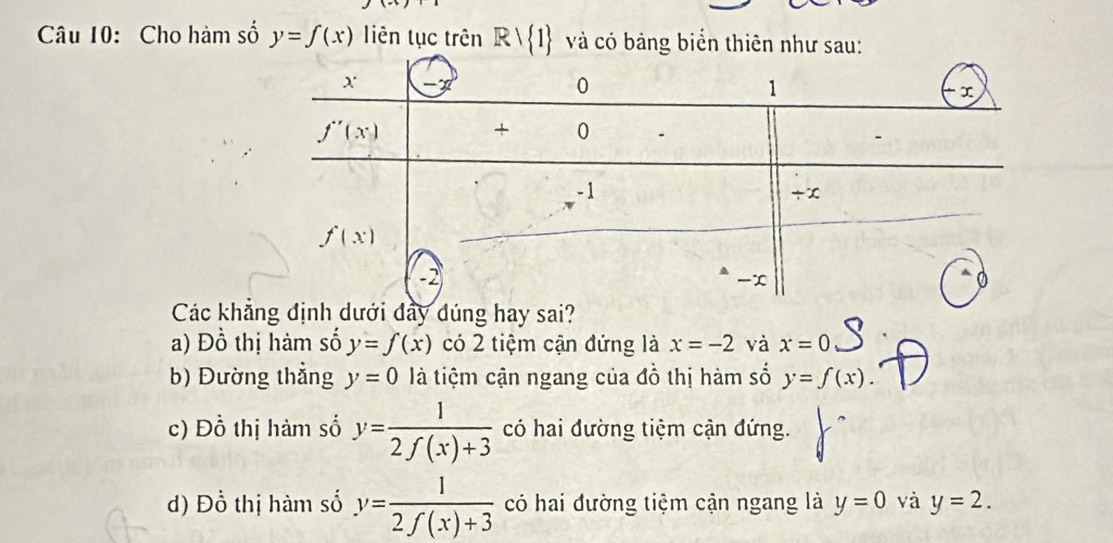 Câu 10: Cho hàm số y=f(x) liên tục trên ℝ\{1} và có bảng biến thiên như sau:
x -∞ 0 1 +∞
f'(x) + 0 - -
-1 +∞
f(x)
-2 -∞ 0
Các khẳng định dưới đây đúng hay sai?
a) Đồ thị hàm số y=f(x) có 2 tiệm cận đứng là x=-2 và x=0. S
b) Đường thẳng y=0 là tiệm cận ngang của đồ thị hàm số y=f(x). Đ
c) Đồ thị hàm số y=1/(2f(x)+3) có hai đường tiệm cận đứng.
d) Đồ thị hàm số y=1/(2f(x)+3) có hai đường tiệm cận ngang là y=0 và y=2.